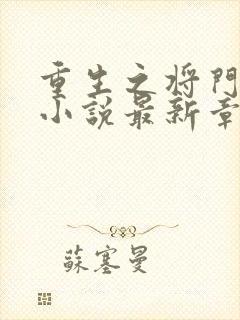 重生之将門
小説最新章
蘇塞曼